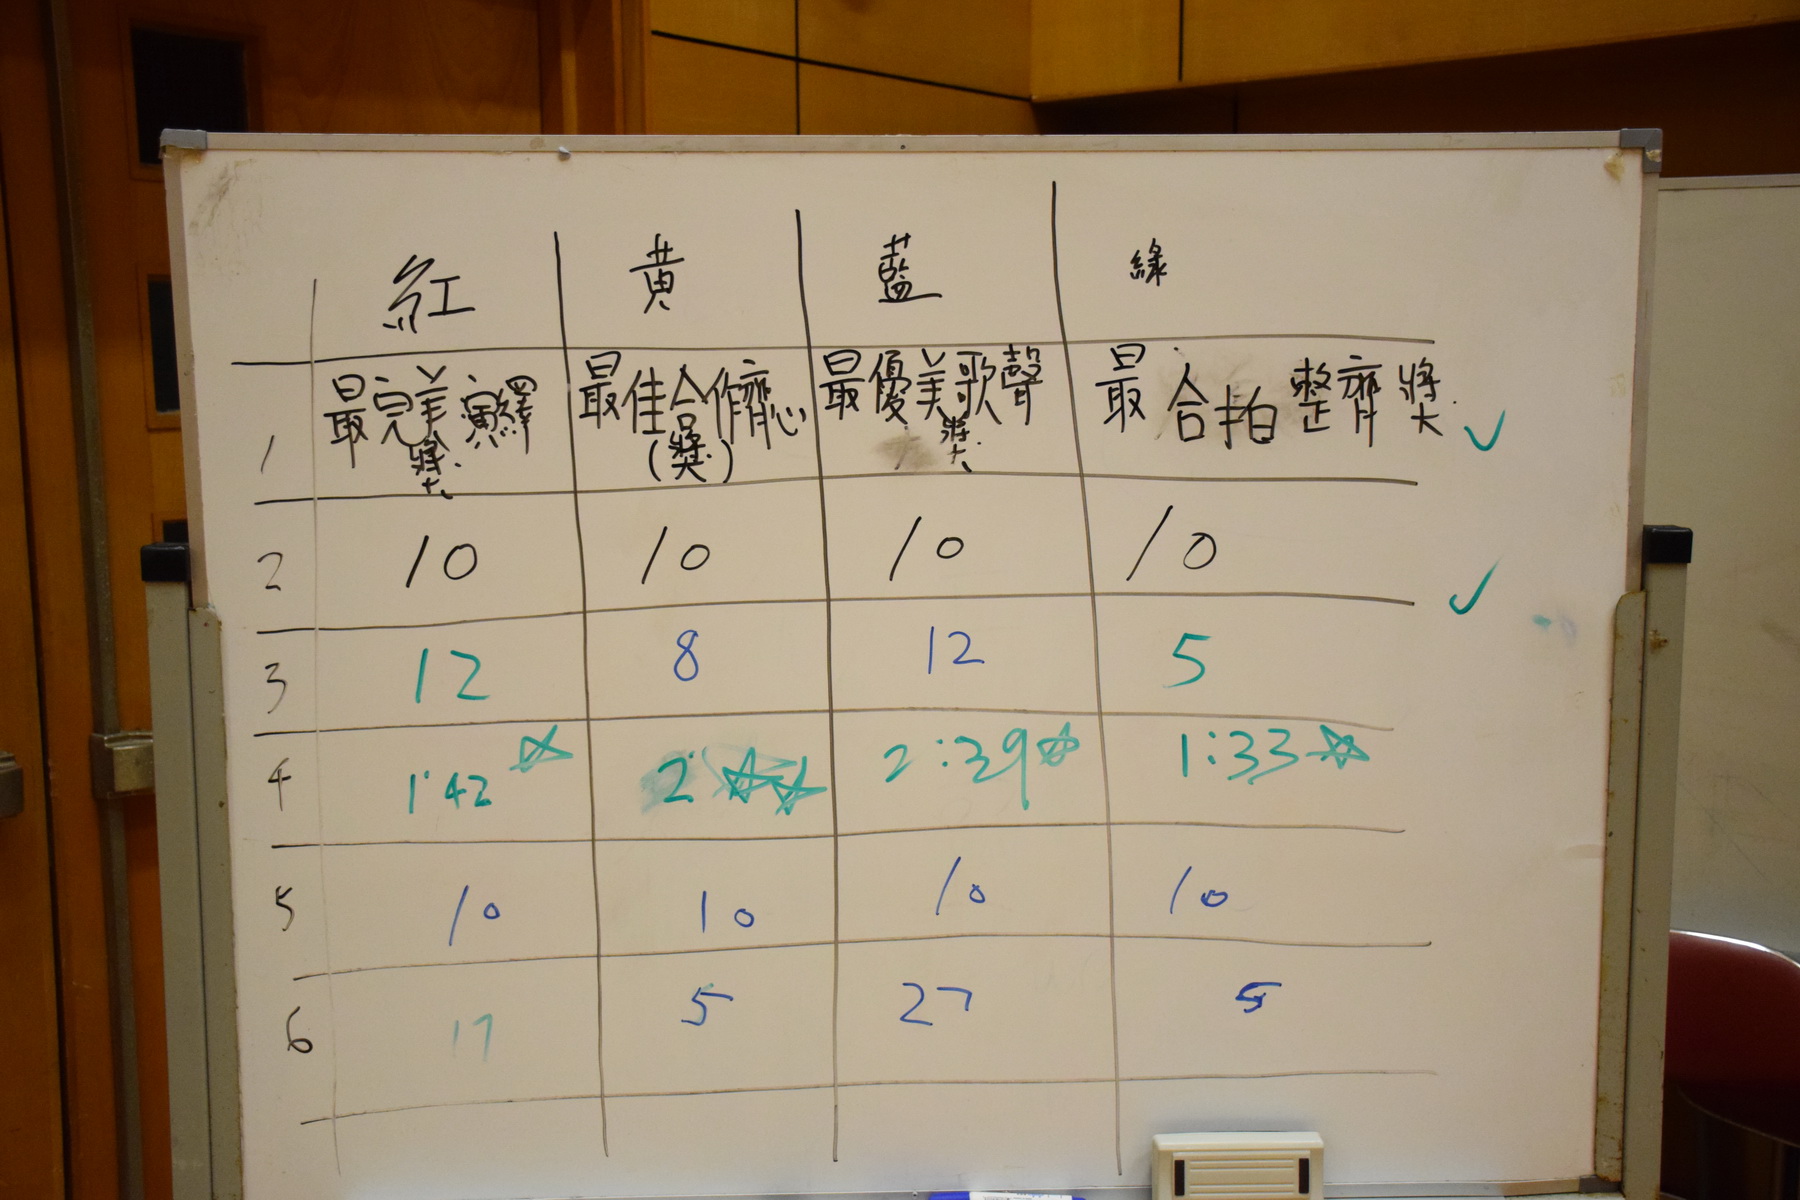 紅 黄 藍 綠
1 最完美演繹獎 最佳合作齊心(獎) 最優美歌聲獎 最合拍整齊獎 ✓
2 10 10 10 10 ✓
3 12 8 12 5
4 1:42 ☆ 2: ☆☆ 2:39 ☆ 1:33 ☆
5 10 10 10 10
6 17 5 27 5